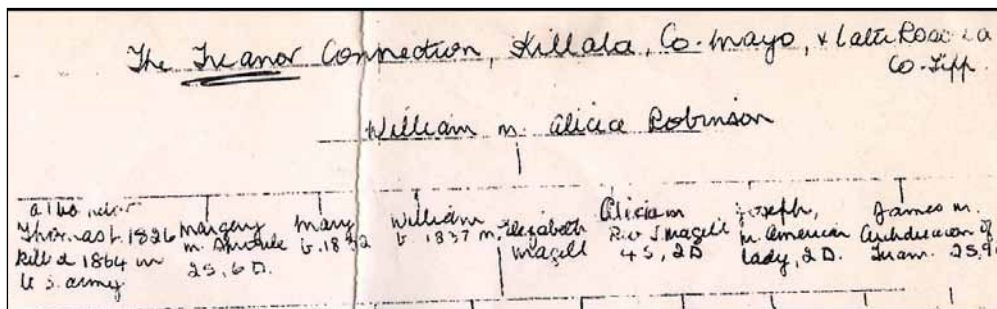 The Treanor Connection, Killala, Co. Mayo, & later
Co. Tipp.
William m. Alicia Robinson
Thomas b. 1826
killed 1864 in
U.S. army
Margery
m.
2S, 6D.
Mary
b. 18
William
b. 1837 m.
Elizabeth
Magill
Alicia m
Rev J Magill
4S, 2D
Joseph,
m. American
lady, 2D.
James m.
Archdeacon of
Tuam. 2S,